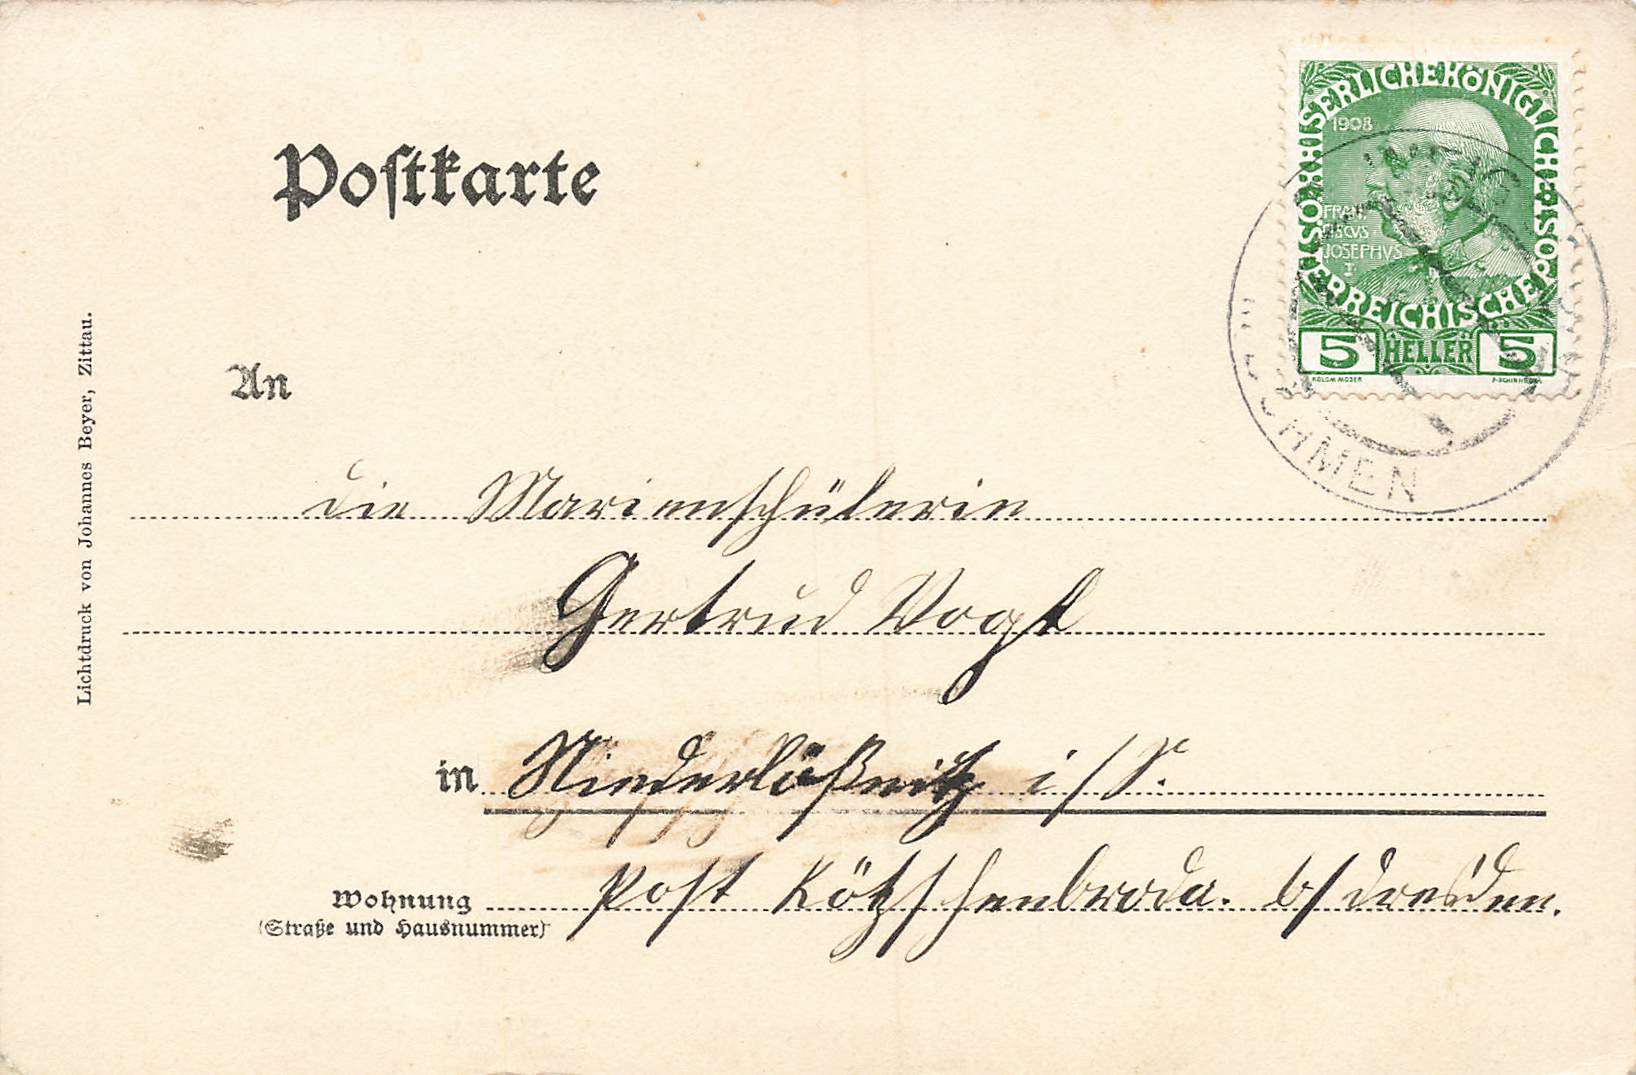 Postkarte
KAISERLICHE KÖNIGLICHE ÖSTERREICHISCHE POST
1908
FRAN
CISCVS
JOSEPHVS
I
5 HELLER 5
KOLOM. MOSER
BÖHMEN
An
die Marienschülerin
Gertrud Vogt
in Niederlößnitz i/S.
Post Kötzschenbroda. b/ Dresden.
Wohnung
(Straße und Hausnummer)
Lichtdruck von Johannes Beyer, Zittau.